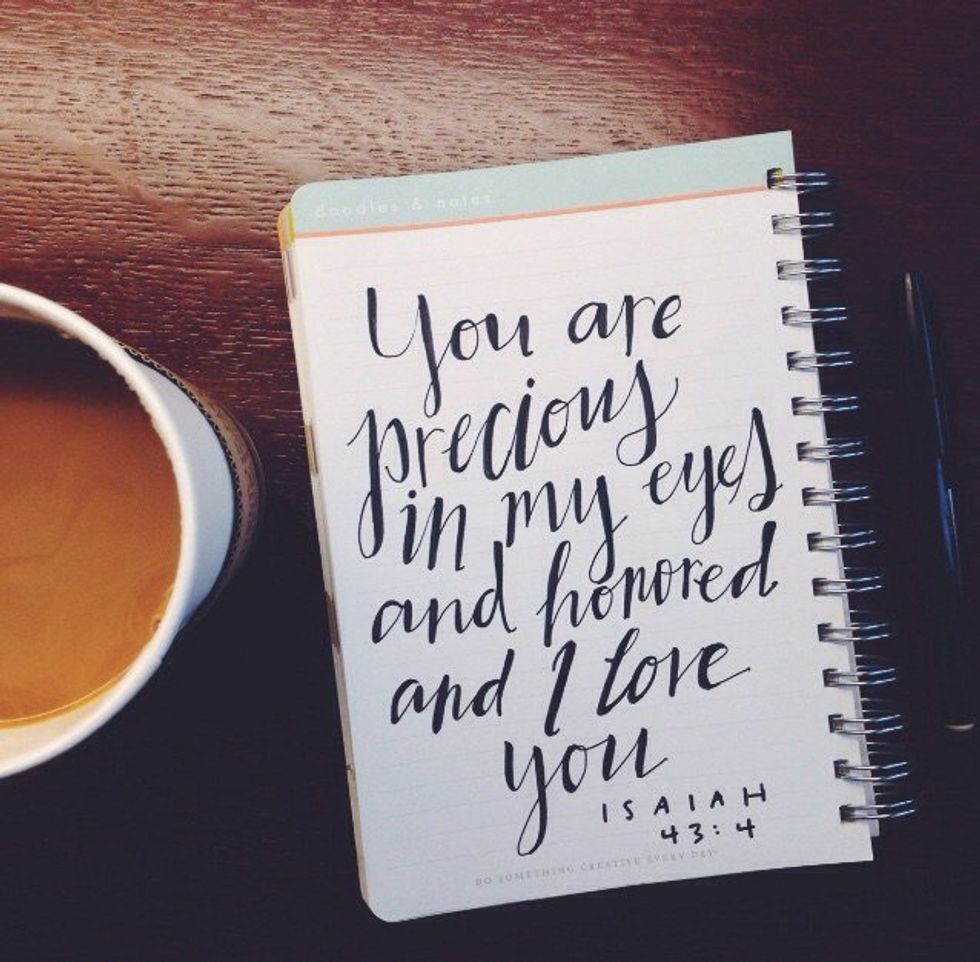 doodles & notes
You are
precious
in my eyes
and honored
and I love
you
ISAIAH
43:4
DO SOMETHING CREATIVE EVERY DAY